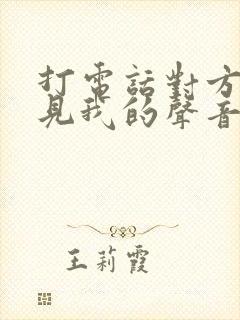 打電話對方
見我的聲音
王莉霞